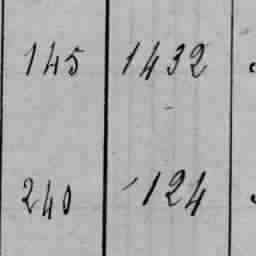 145 1432
240 124